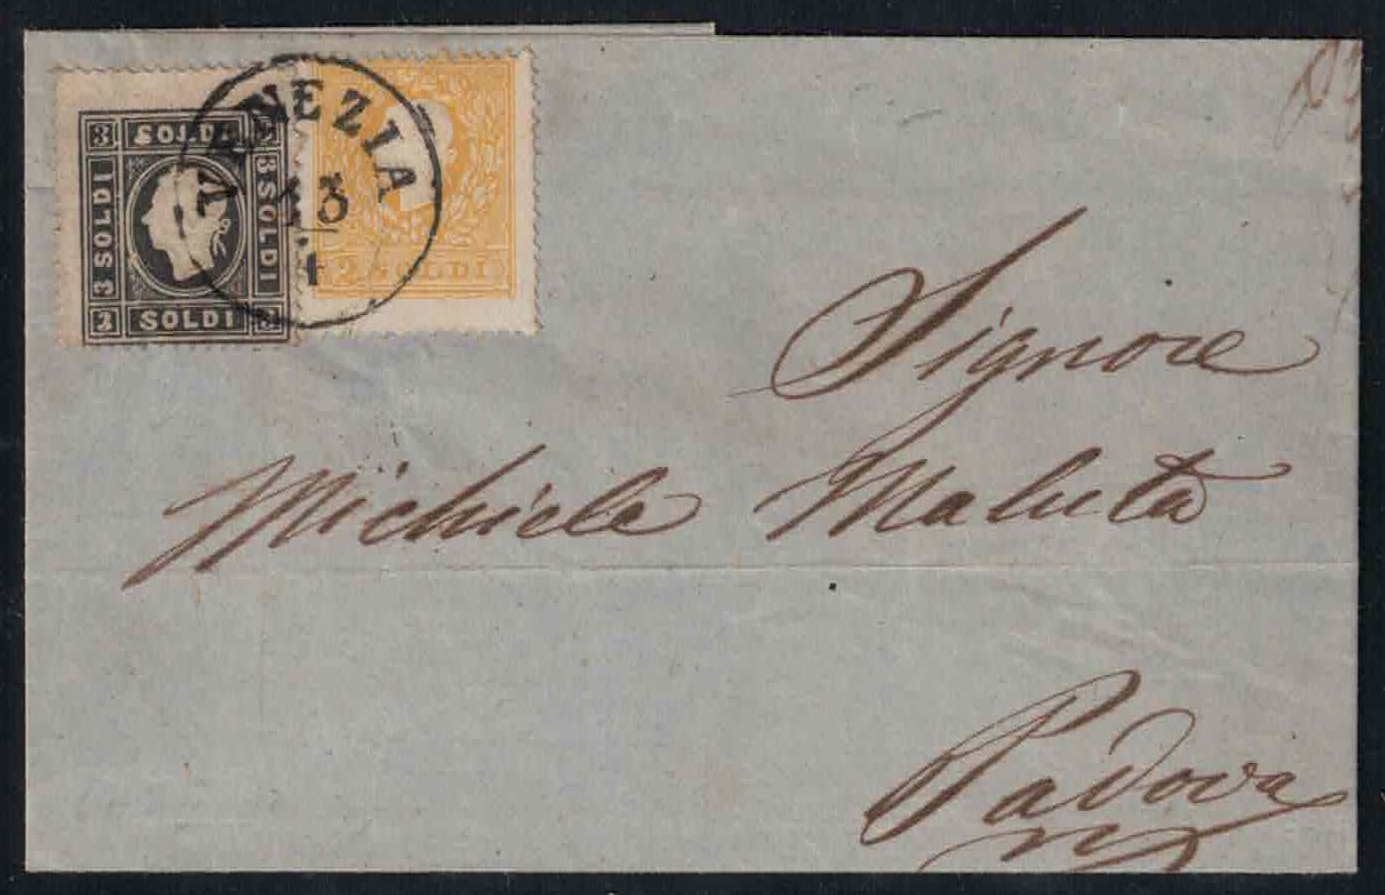 3 SOLDI 3
3 SOLDI
3 SOLDI
3 SOLDI 3
2 SOLDI
VENEZIA
13
4
Signore
Michiele Maluta
Padova